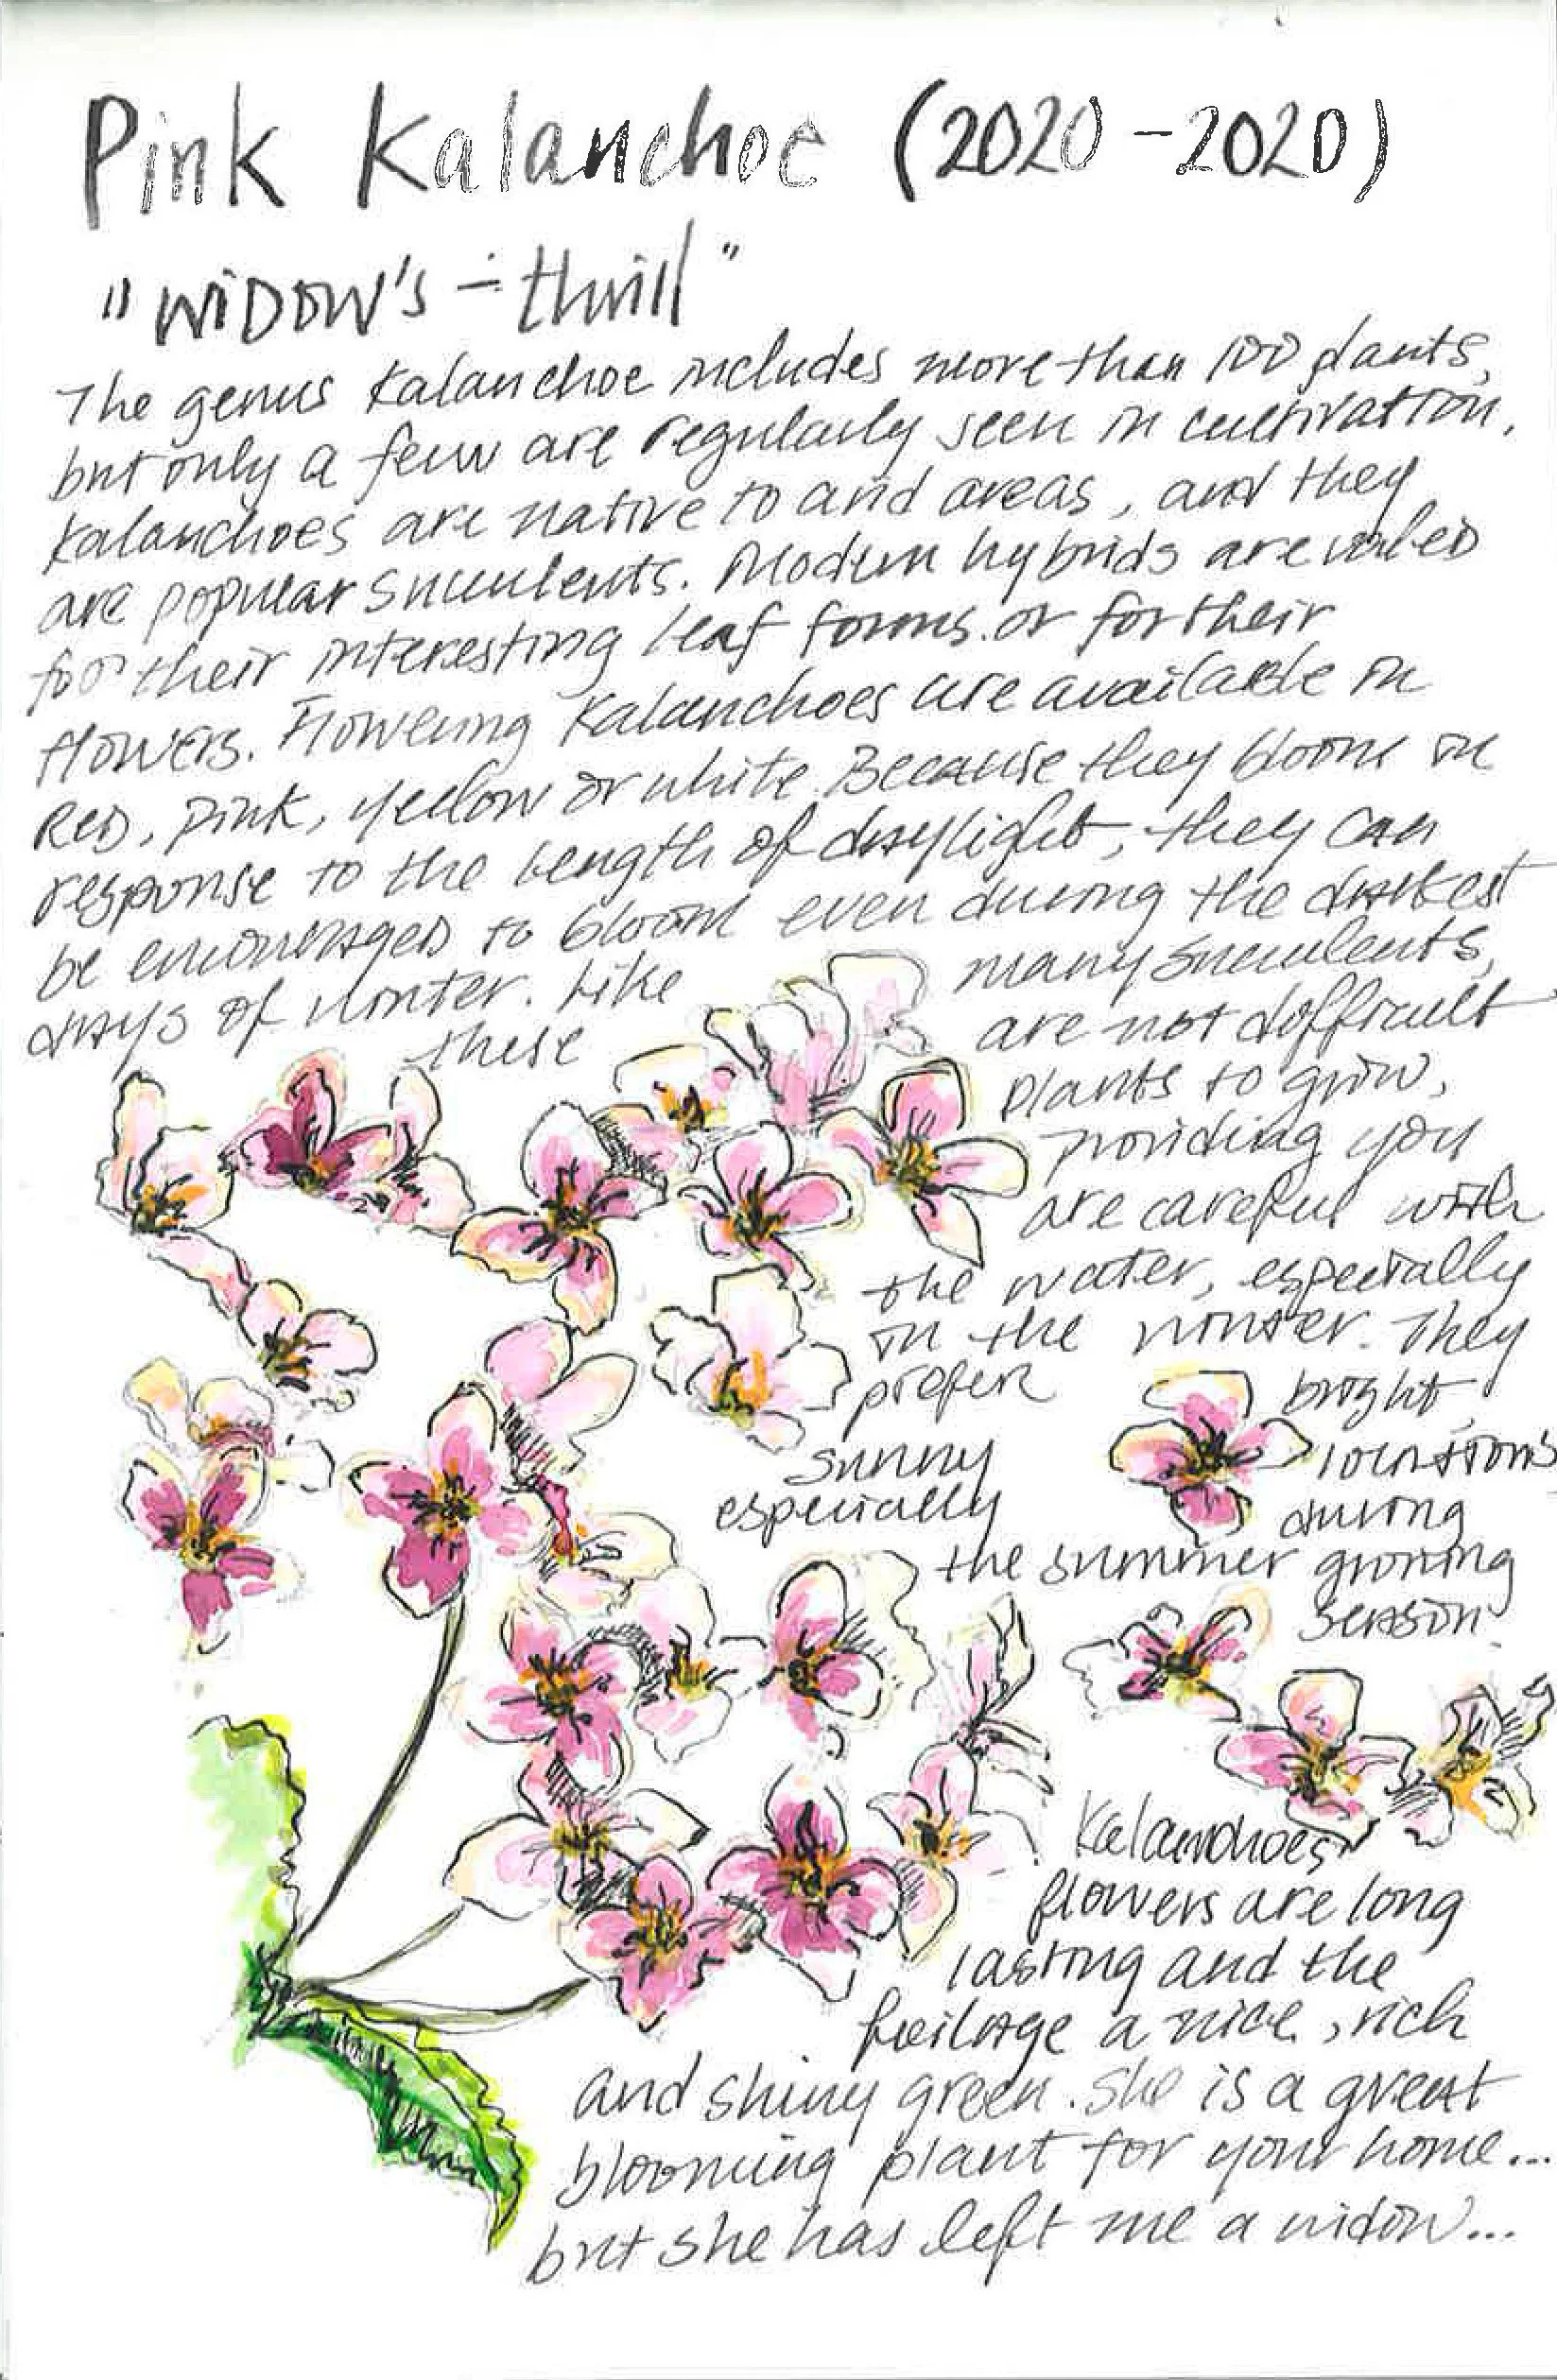 Pink Kalanchoe (2020-2020)
"WiDOW's-thrill"
The genus Kalanchoe includes more than 100 plants,
but only a few are regularly seen in cultivation.
Kalanchoes are native to arid areas, and they
are popular succulents. Modern hybrids are valued
for their interesting leaf forms or for their
flowers. Flowering Kalanchoes are available in
RED, pink, yellow or white. Because they bloom in
response to the length of daylight, they can
be encouraged to bloom even during the darkest
days of winter. Like many succulents,
these are not difficult
plants to grow,
providing you
are careful with
the water, especially
in the winter. They
prefer bright
sunny locations
especially during
the summer growing
season.
Kalanchoes
flowers are long
lasting and the
foilage a nice, rich
and shiny green. She is a great
blooming plant for your home...
but she has left me a widow...